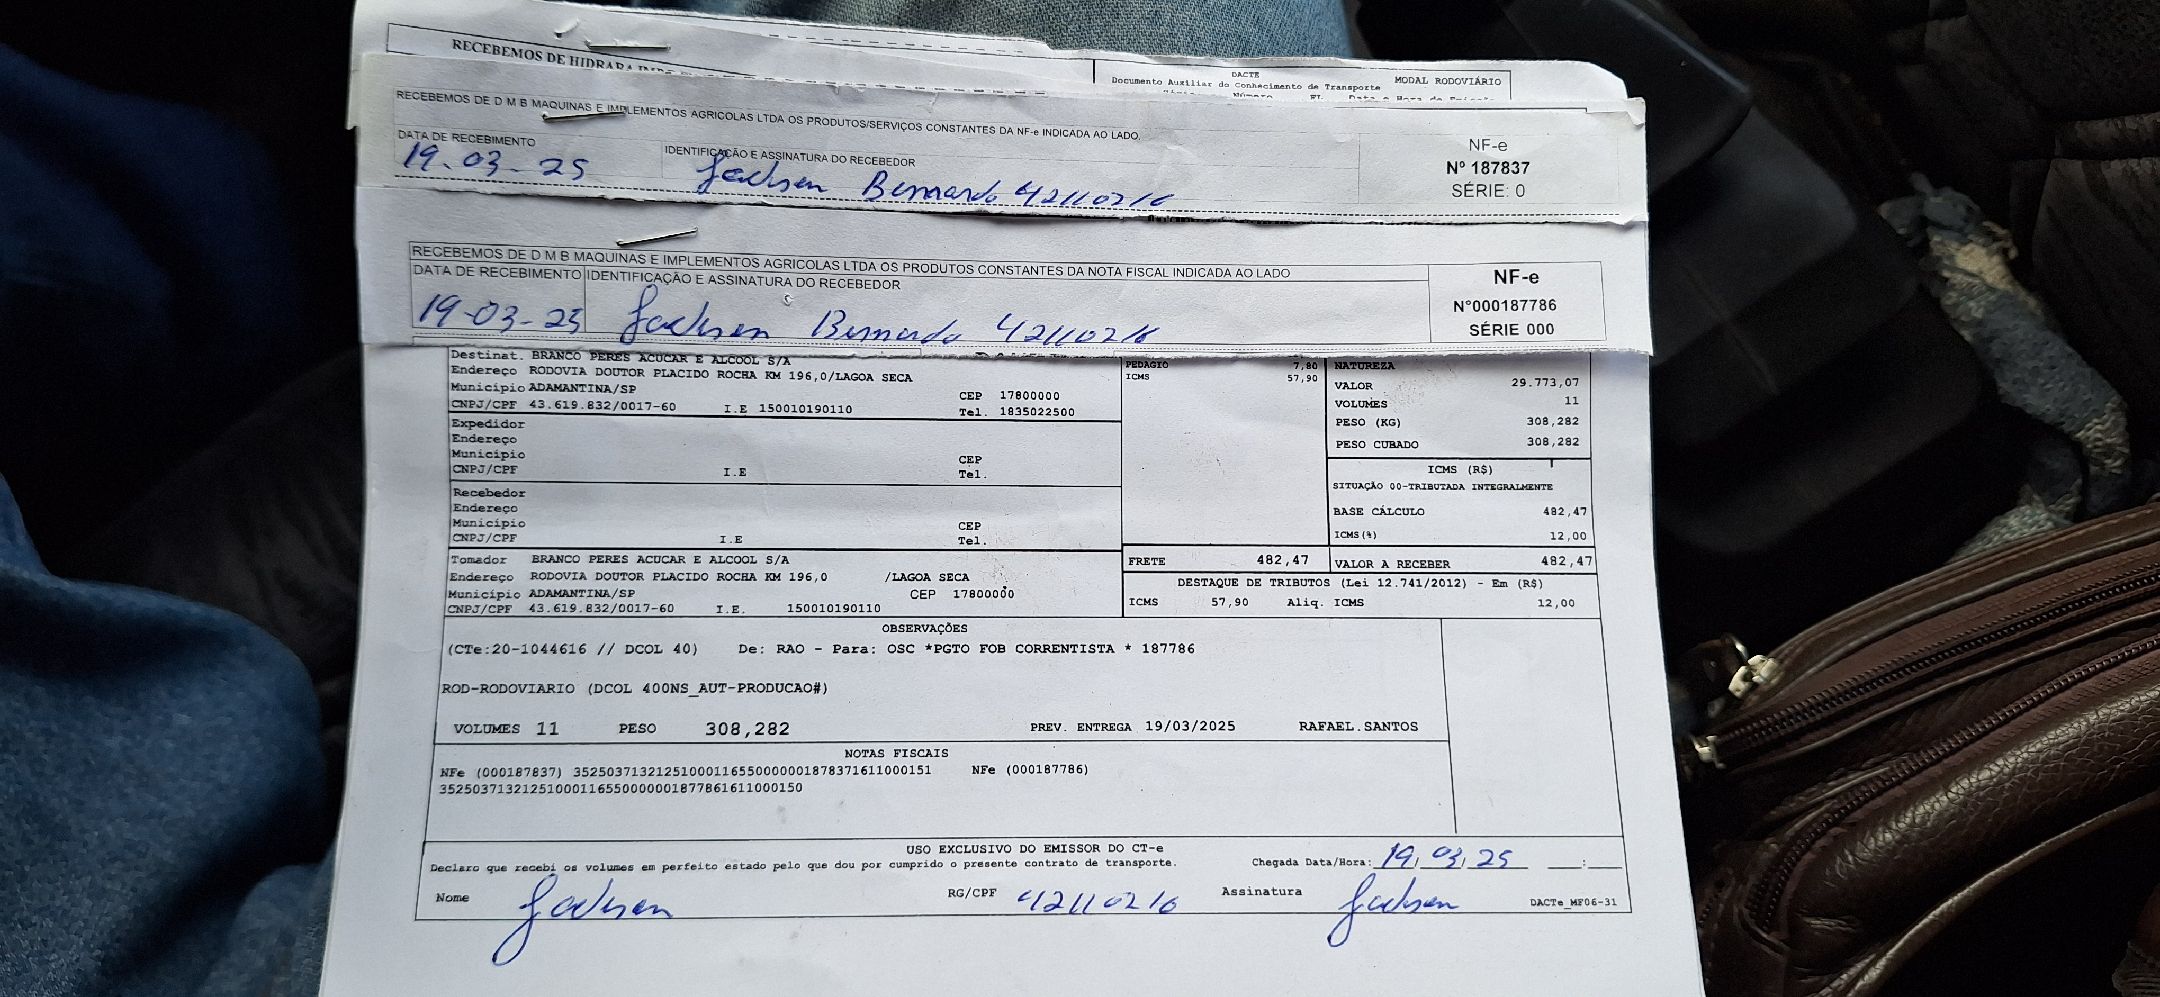 RECEBEMOS DE HIDRARA
DACTE
Documento Auxiliar do Conhecimento de Transporte
MODAL RODOVIÁRIO
RECEBEMOS DE D M B MAQUINAS E IMPLEMENTOS AGRICOLAS LTDA OS PRODUTOS/SERVIÇOS CONSTANTES DA NF-e INDICADA AO LADO.
DATA DE RECEBIMENTO
IDENTIFICAÇÃO E ASSINATURA DO RECEBEDOR
19-03-25 Jachsen Bernardo 42110216
NF-e
Nº 187837
SÉRIE: 0
RECEBEMOS DE D M B MAQUINAS E IMPLEMENTOS AGRICOLAS LTDA OS PRODUTOS CONSTANTES DA NOTA FISCAL INDICADA AO LADO
DATA DE RECEBIMENTO IDENTIFICAÇÃO E ASSINATURA DO RECEBEDOR
19-03-25 Jachsen Bernardo 42110216
NF-e
N°000187786
SÉRIE 000
Destinat. BRANCO PERES ACUCAR E ALCOOL S/A
Endereço RODOVIA DOUTOR PLACIDO ROCHA KM 196,0/LAGOA SECA
Município ADAMANTINA/SP CEP 17800000
CNPJ/CPF 43.619.832/0017-60 I.E 150010190110 Tel. 1835022500
Expedidor
Endereço
Município CEP
CNPJ/CPF I.E Tel.
Recebedor
Endereço
Município CEP
CNPJ/CPF I.E Tel.
Tomador BRANCO PERES ACUCAR E ALCOOL S/A
Endereço RODOVIA DOUTOR PLACIDO ROCHA KM 196,0 /LAGOA SECA
Município ADAMANTINA/SP CEP 17800000
CNPJ/CPF 43.619.832/0017-60 I.E. 150010190110
PEDAGIO 7,80
ICMS 57,90
FRETE 482,47
NATUREZA
VALOR 29.773,07
VOLUMES 11
PESO (KG) 308,282
PESO CUBADO 308,282
ICMS (R$)
SITUAÇÃO 00-TRIBUTADA INTEGRALMENTE
BASE CÁLCULO 482,47
ICMS(%) 12,00
VALOR A RECEBER 482,47
DESTAQUE DE TRIBUTOS (Lei 12.741/2012) - Em (R$)
ICMS 57,90 Aliq. ICMS 12,00
OBSERVAÇÕES
(CTe:20-1044616 // DCOL 40) De: RAO - Para: OSC *PGTO FOB CORRENTISTA * 187786
ROD-RODOVIARIO (DCOL 400NS_AUT-PRODUCAO#)
VOLUMES 11 PESO 308,282 PREV. ENTREGA 19/03/2025 RAFAEL.SANTOS
NOTAS FISCAIS
NFe (000187837) 35250371321251000116550000001878371611000151 NFe (000187786)
35250371321251000116550000001877861611000150
USO EXCLUSIVO DO EMISSOR DO CT-e
Declaro que recebi os volumes em perfeito estado pelo que dou por cumprido o presente contrato de transporte. Chegada Data/Hora: 19/03/25 __:__
Nome Jachsen RG/CPF 42110216 Assinatura Jachsen
DACTe_MF06-31